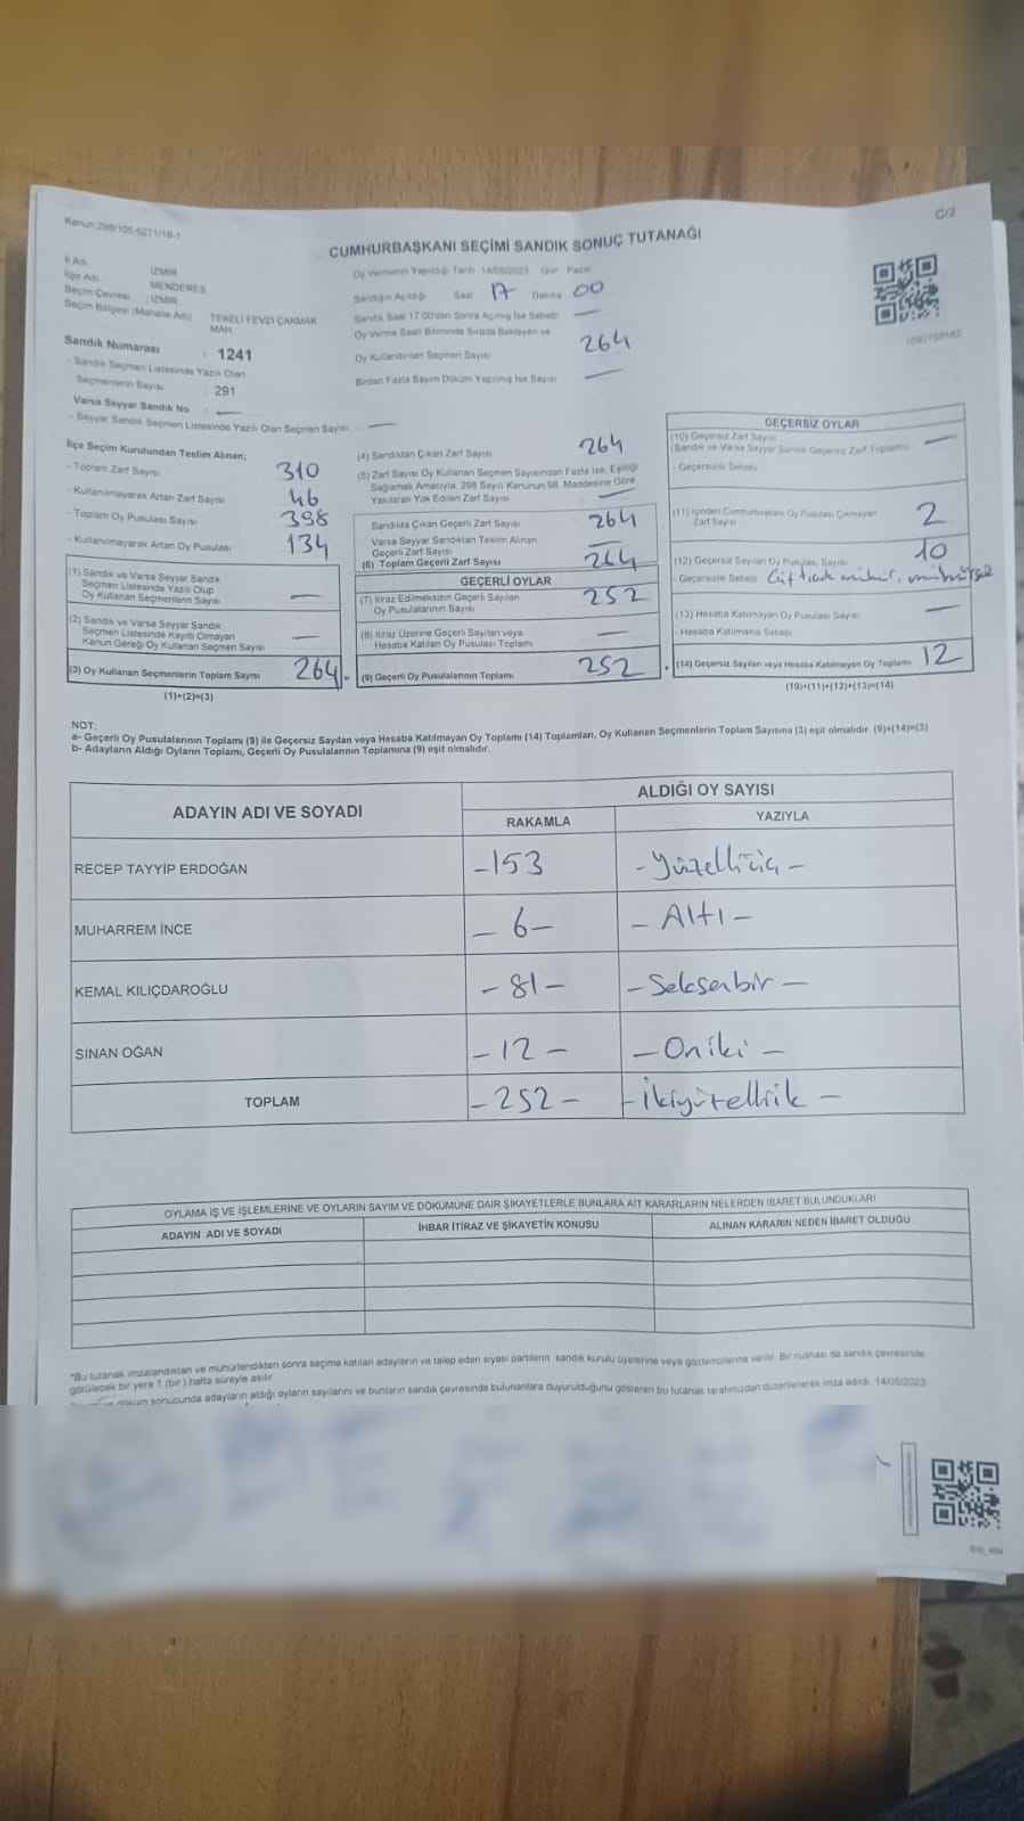 C/2
CUMHURBAŞKANI SEÇİMİ SANDIK SONUÇ TUTANAĞI
İl Adı İZMİR
İlçe Adı MENDERES
Seçim Çevresi : İZMİR
Seçim Bölgesi (Mahalle Adı) TEKELİ FEVZİ ÇAKMAK MAH.
Sandık Numarası : 1241
- Sandık Seçmen Listesinde Yazılı Olan
Seçmenlerin Sayısı : 291
Varsa Seyyar Sandık No : —
- Seyyar Sandık Seçmen Listesinde Yazılı Olan Seçmen Sayısı —
Oy Vermenin Yapıldığı Tarih 14/05/2023 Gün Pazar
Sandığın Açıldığı Saat 17 Dakika 00
Sandık Saat 17.00'den Sonra Açılmış İse Sebebi —
Oy Verme Saati Bitiminde Sırada Bekleyen ve
Oy Kullandırılan Seçmen Sayısı 264
Birden Fazla Sayım Döküm Yapılmış İse Sayısı —
İlçe Seçim Kurulundan Teslim Alınan;
- Toplam Zarf Sayısı 310
- Kullanılmayarak Artan Zarf Sayısı 46
- Toplam Oy Pusulası Sayısı 398
- Kullanılmayarak Artan Oy Pusulası 134
(1) Sandık ve Varsa Seyyar Sandık
Seçmen Listesinde Yazılı Olup
Oy Kullanan Seçmenlerin Sayısı —
(2) Sandık ve Varsa Seyyar Sandık
Seçmen Listesinde Kayıtlı Olmayan
Kanun Gereği Oy Kullanan Seçmen Sayısı —
(3) Oy Kullanan Seçmenlerin Toplam Sayısı 264
(1)+(2)=(3)
(4) Sandıktan Çıkan Zarf Sayısı 264
(5) Zarf Sayısı Oy Kullanan Seçmen Sayısından Fazla ise, Eşitliği
Sağlamak Amacıyla, 298 Sayılı Kanunun 98. Maddesine Göre
Yakılarak Yok Edilen Zarf Sayısı —
Sandıkta Çıkan Geçerli Zarf Sayısı 264
Varsa Seyyar Sandıktan Teslim Alınan
Geçerli Zarf Sayısı —
(6) Toplam Geçerli Zarf Sayısı 264
GEÇERLİ OYLAR
(7) İtiraz Edilmeksizin Geçerli Sayılan
Oy Pusulalarının Sayısı 252
(8) İtiraz Üzerine Geçerli Sayılan veya
Hesaba Katılan Oy Pusulası Toplamı —
(9) Geçerli Oy Pusulalarının Toplamı 252
GEÇERSİZ OYLAR
(10) Geçersiz Zarf Sayısı
(Sandık ve Varsa Seyyar Sandık Geçersiz Zarf Toplamı) —
- Geçersizlik Sebebi
(11) İçinden Cumhurbaşkanı Oy Pusulası Çıkmayan
Zarf Sayısı 2
(12) Geçersiz Sayılan Oy Pusulası Sayısı 10
- Geçersizlik Sebebi
(13) Hesaba Katılmayan Oy Pusulası Sayısı —
- Hesaba Katılmama Sebebi
(14) Geçersiz Sayılan veya Hesaba Katılmayan Oy Toplamı 12
(10)+(11)+(12)+(13)=(14)
NOT:
a- Geçerli Oy Pusulalarının Toplamı (9) ile Geçersiz Sayılan veya Hesaba Katılmayan Oy Toplamı (14) Toplamları, Oy Kullanan Seçmenlerin Toplam Sayısına (3) eşit olmalıdır. (9)+(14)=(3)
b- Adayların Aldığı Oyların Toplamı, Geçerli Oy Pusulalarının Toplamına (9) eşit olmalıdır.
ADAYIN ADI VE SOYADI ALDIĞI OY SAYISI
RAKAMLA YAZIYLA
RECEP TAYYİP ERDOĞAN -153 - Yüzelliüç -
MUHARREM İNCE - 6 - - Altı -
KEMAL KILIÇDAROĞLU - 81 - - Seksenbir -
SİNAN OĞAN - 12 - - Oniki -
TOPLAM - 252 - - İkiyüzelliik -
OYLAMA İŞ VE İŞLEMLERİNE VE OYLARIN SAYIM VE DÖKÜMÜNE DAİR ŞİKAYETLERLE BUNLARA AİT KARARLARIN NELERDEN İBARET BULUNDUKLARI
ADAYIN ADI VE SOYADI İHBAR İTİRAZ VE ŞİKAYETİN KONUSU ALINAN KARARIN NEDEN İBARET OLDUĞU
*Bu tutanak imzalandıktan ve mühürlendikten sonra seçime katılan adayların ve talep eden siyasi partilerin sandık kurulu üyelerine veya gözlemcilerine verilir. Bir nüshası da sandık çevresinde
görülecek bir yere 1 (bir) hafta süreyle asılır.
döküm sonucunda adayların aldığı oyların sayılarını ve bunların sandık çevresinde bulunanlara duyurulduğunu gösteren bu tutanak tarafımızdan düzenlenerek imza edildi. 14/05/2023